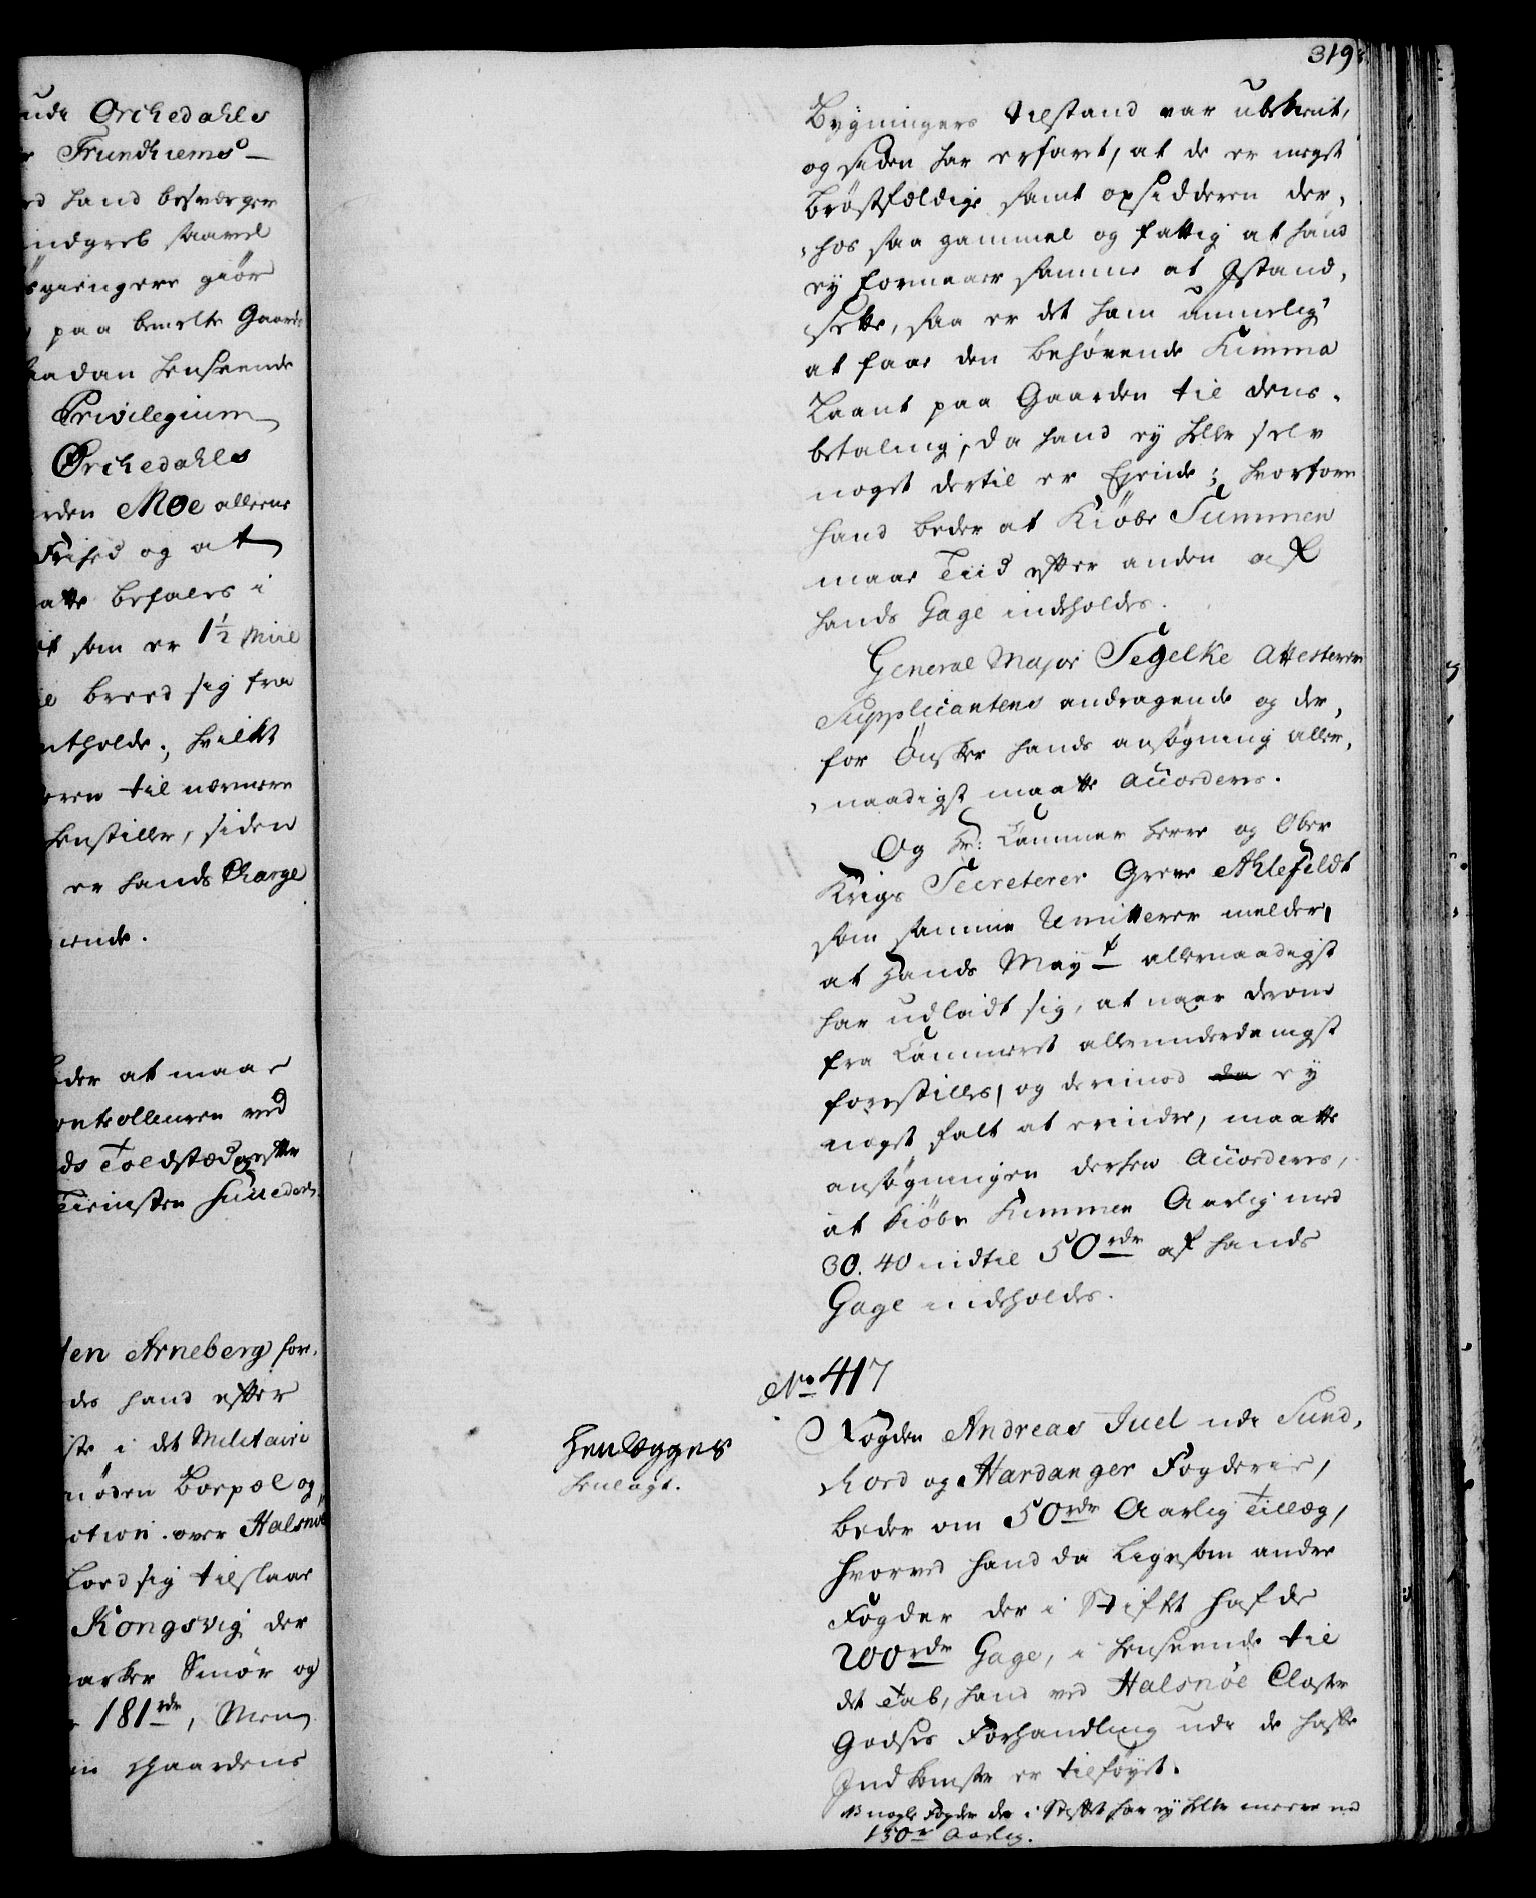 319
ude Orchedahls
Trundhiems
hand besværger
indgreb saavel
giør
paa bemelte Gaard
saadan henseende
Privilegium
Orchedahls
Moe allerne
Frihed og at
befales i
som er 1½ Miil
breed sig fra
entholde; hvilket
til nærmere
henstiller, siden
er hands Charge
beder at maae
Controlleuren ved
Toldstæd efter
Arneberg for
hand efter
i det Militaire
Borpæl og
over Halsnøe
lod sig tilslaae
Kongsvig der
Smør og
181 rdr, Men
Gaardens
Bygningers tilstand var ubekient,
og siden har erfaret, at de er meget
brøstfældige samt opsidderen der,
hos saa gammel og fattig at hand
ey formaaer samme at Istand,
sette, saa er det ham umuelig
at faae den behøvende Summa
Laant paa Gaarden til dens
betaling, da hand ey heller selv
noget dertil er Eyende; hvorfore
hand beder at Kiøbe Summen
maae Tiid efter anden af
hands Gage indeholdes.
General Major Segelke Attesterer
Supplicantens andragende og der,
for Ønsker hands ansøgning aller,
naadigst maatte Accorderes.
Og Hr: Cammer Herre og Ober
Krigs Secreterer Greve Ahlefeldt
som samme Remitterer melder,
at Hands Mayt allernaadigst
har udladt sig, at naar derom
fra Cammeret allerunderdanigst
forestilles, og derimod ey
noget falt at erindre, maatte
ansøgningen derhen Accorderes,
at Kiøbe Summen Aarlig med
30. 40 indtil 50 rdr af hands
Gage indeholdes.
No 417
Henlægges
henlagt.
Fogden Andreas Juel udi Sund,
hord og Hardanger Fogderie,
beder om 50 rdr Aarlig Tillæg,
hvorved hand da ligesom andre
Fogder der i Stiftet hafde
200 rdr Gage, i henseende til
det Tab, hand ved Halsnøe Closter
Godses Forhandling udi de hafte
Indkomster er tilføyet.
NB nogle Fogder der i Stiftet har ey heller meere end
150 r Aarlig.